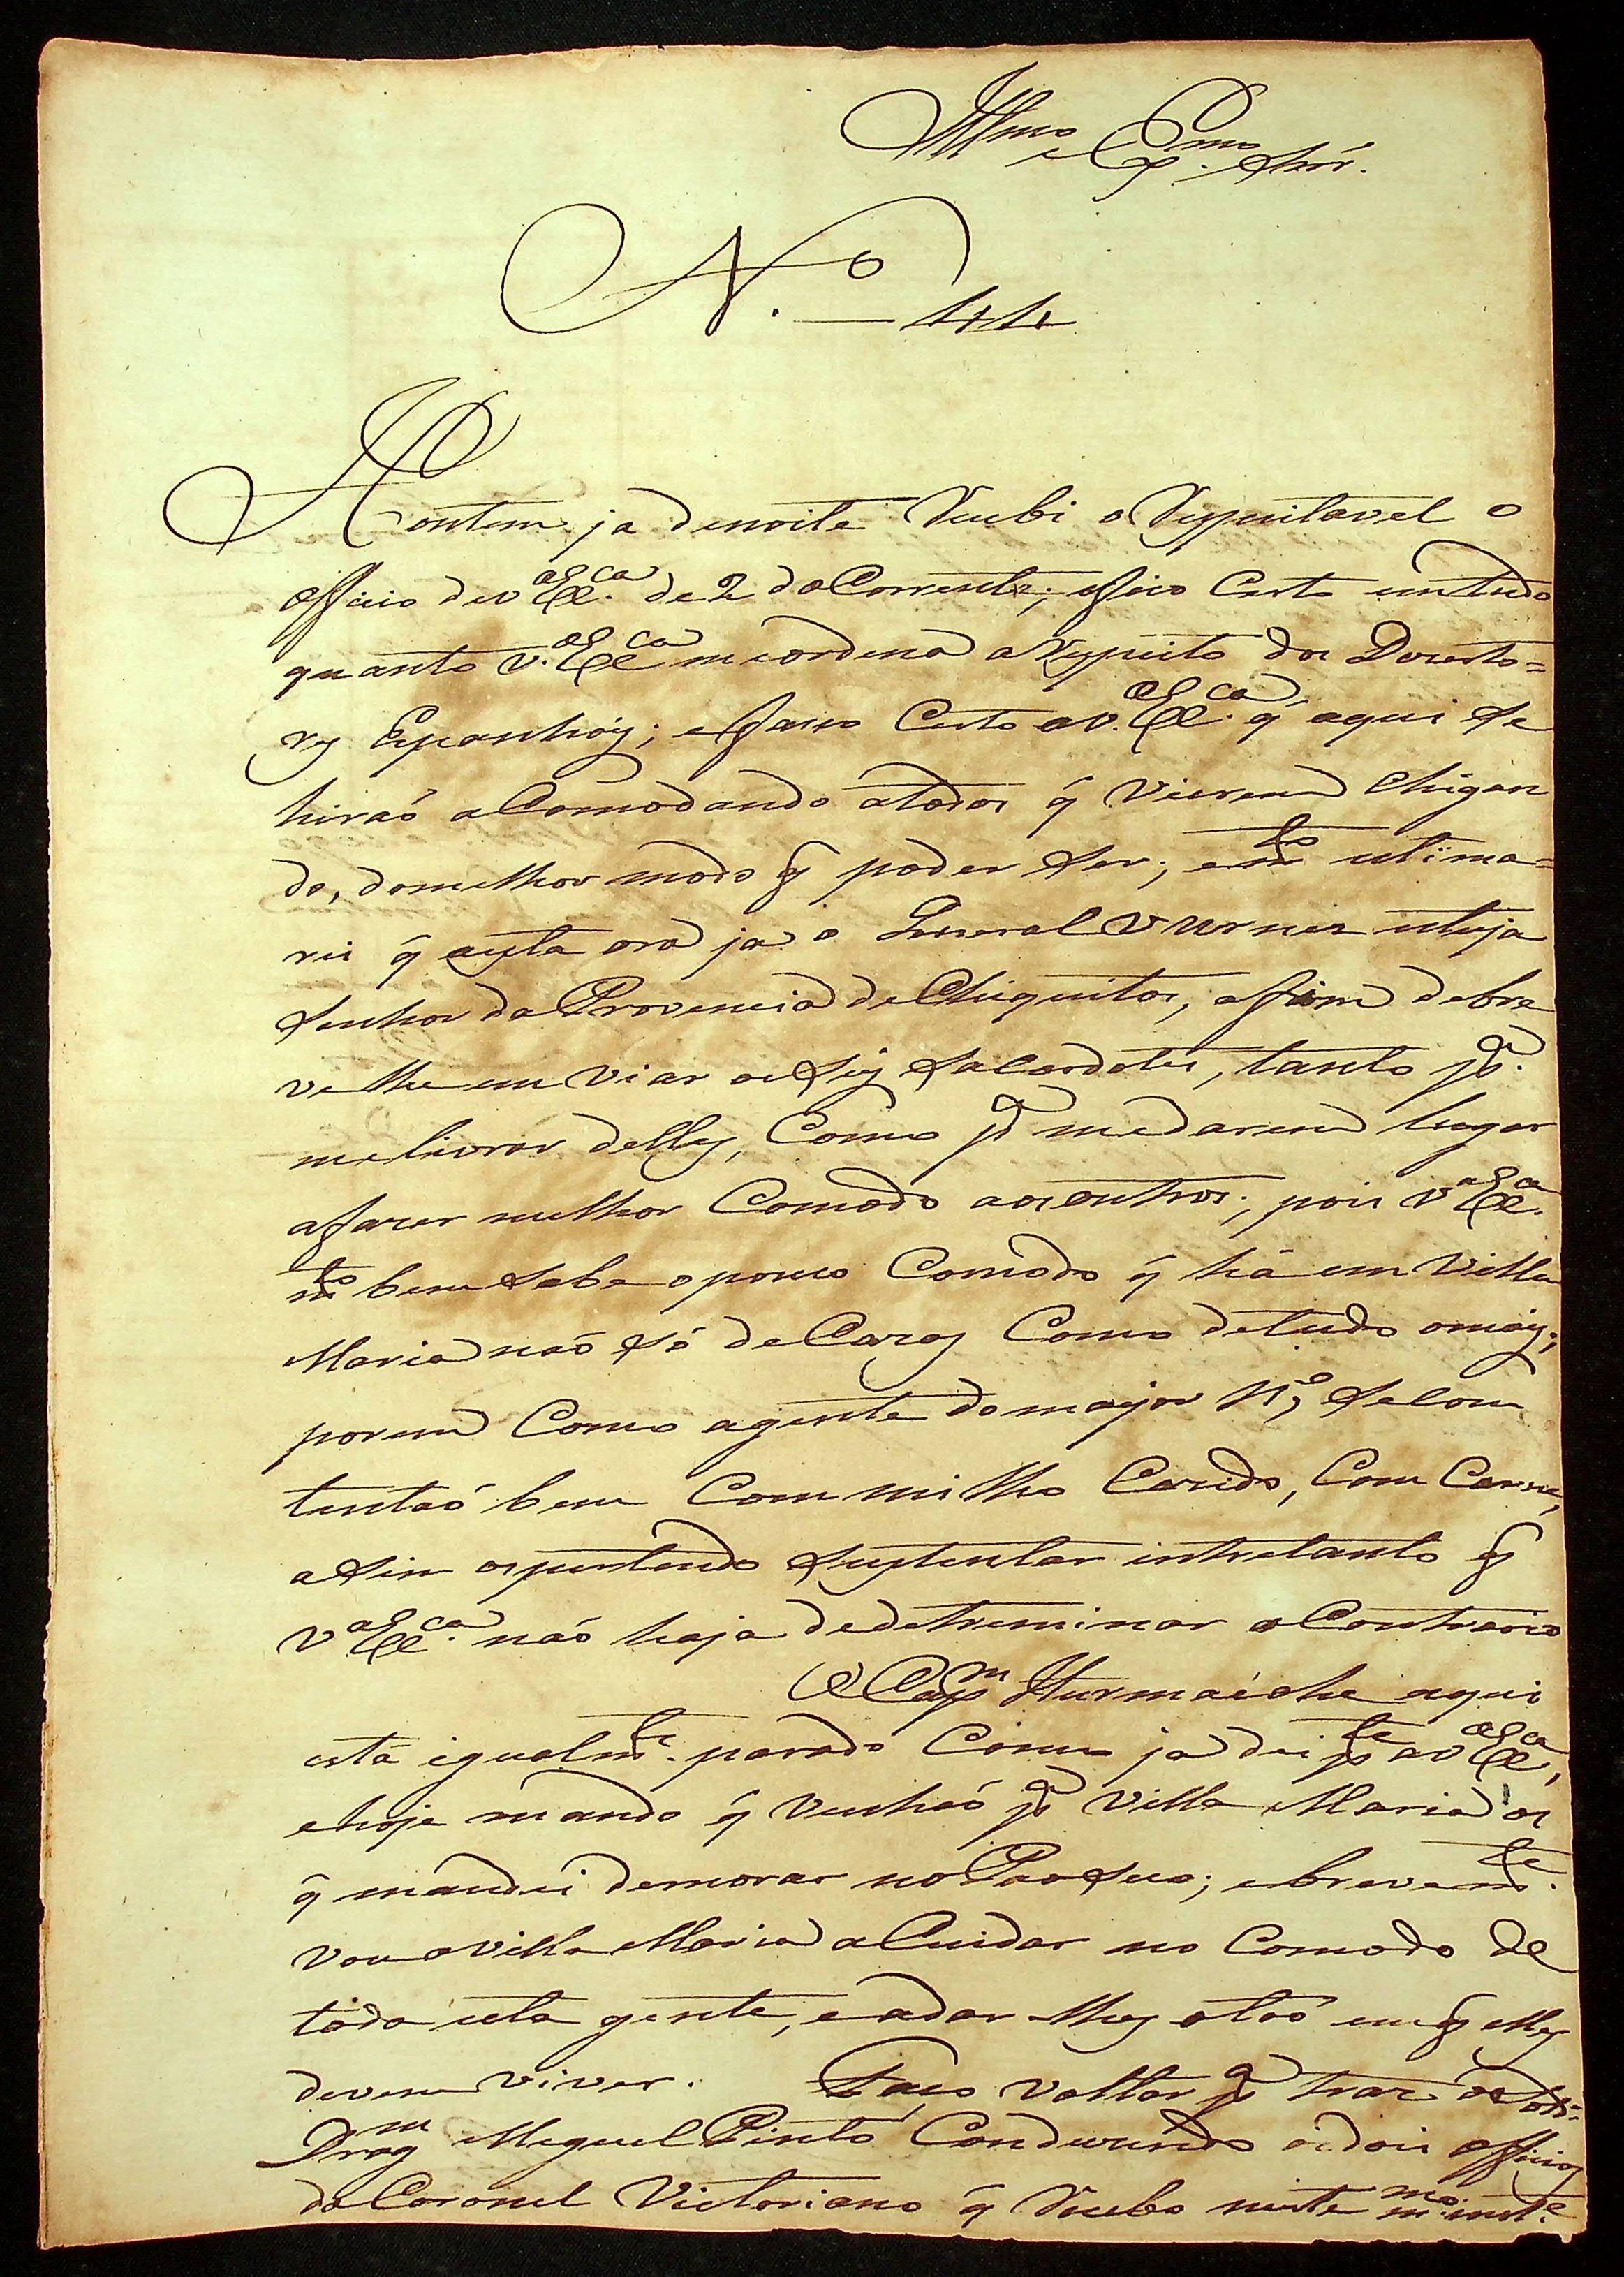 Illmo e Exmo Snr.
N.o 44
Hontem ja denoite Recebi o Respeitavel o
officio de v.a Ex.ca de 2 do Corrente; e fico Certo em tudo
quanto v.a Ex.ca me ordena a Respeito dos Dezerto=
res Espanhóes; e faço Certo a v.a Ex.ca q̃ aqui se
hiraó aComodando atodos q̃ vierem chegan
do, domelhor modo q̃ poder ser; e m.to estima=
rei q̃ aesta ora ja o General Vurnes esteja
Senhor da Provencia de Chiquitos, afim debre
ve lhe em viar os seis Sacerdotes, tanto p.a
melivrar delles, Como p.a medarem lugar
afazer melhor Comodo aos outros; pois v.a Ex.ca
m.to bem sabe o pouco Comodo q̃ há em Villa
Maria naó só de Cazas Como detudo omais;
porem Como agente domayor N.o, se Con
tentaó bem Com milho Cozido, Com Carne,
asim os pertendo sustentar intretanto q̃
v.a Ex.ca naó haja dedetreminar o Contrario
O Cap.m Hurmaéche aqui
está igualm.te parado Como ja dei p.te a v.a Ex.ca,
e hoje mando q̃ venhaó p.a Villa Maria os
q̃ mandei demorar no Pao Seco; e brevem.te
vou a Villa Maria a Cuidar no Comodo de
toda esta gente, e adar lhes o tóo em q̃ elles
devem viver. Faço voltar p.a traz o Sold.o
Drag.m Meguel Pinto Conduzindo os dois officios
do Coronel Victoriano q̃ Recebo neste m.mo inst.e